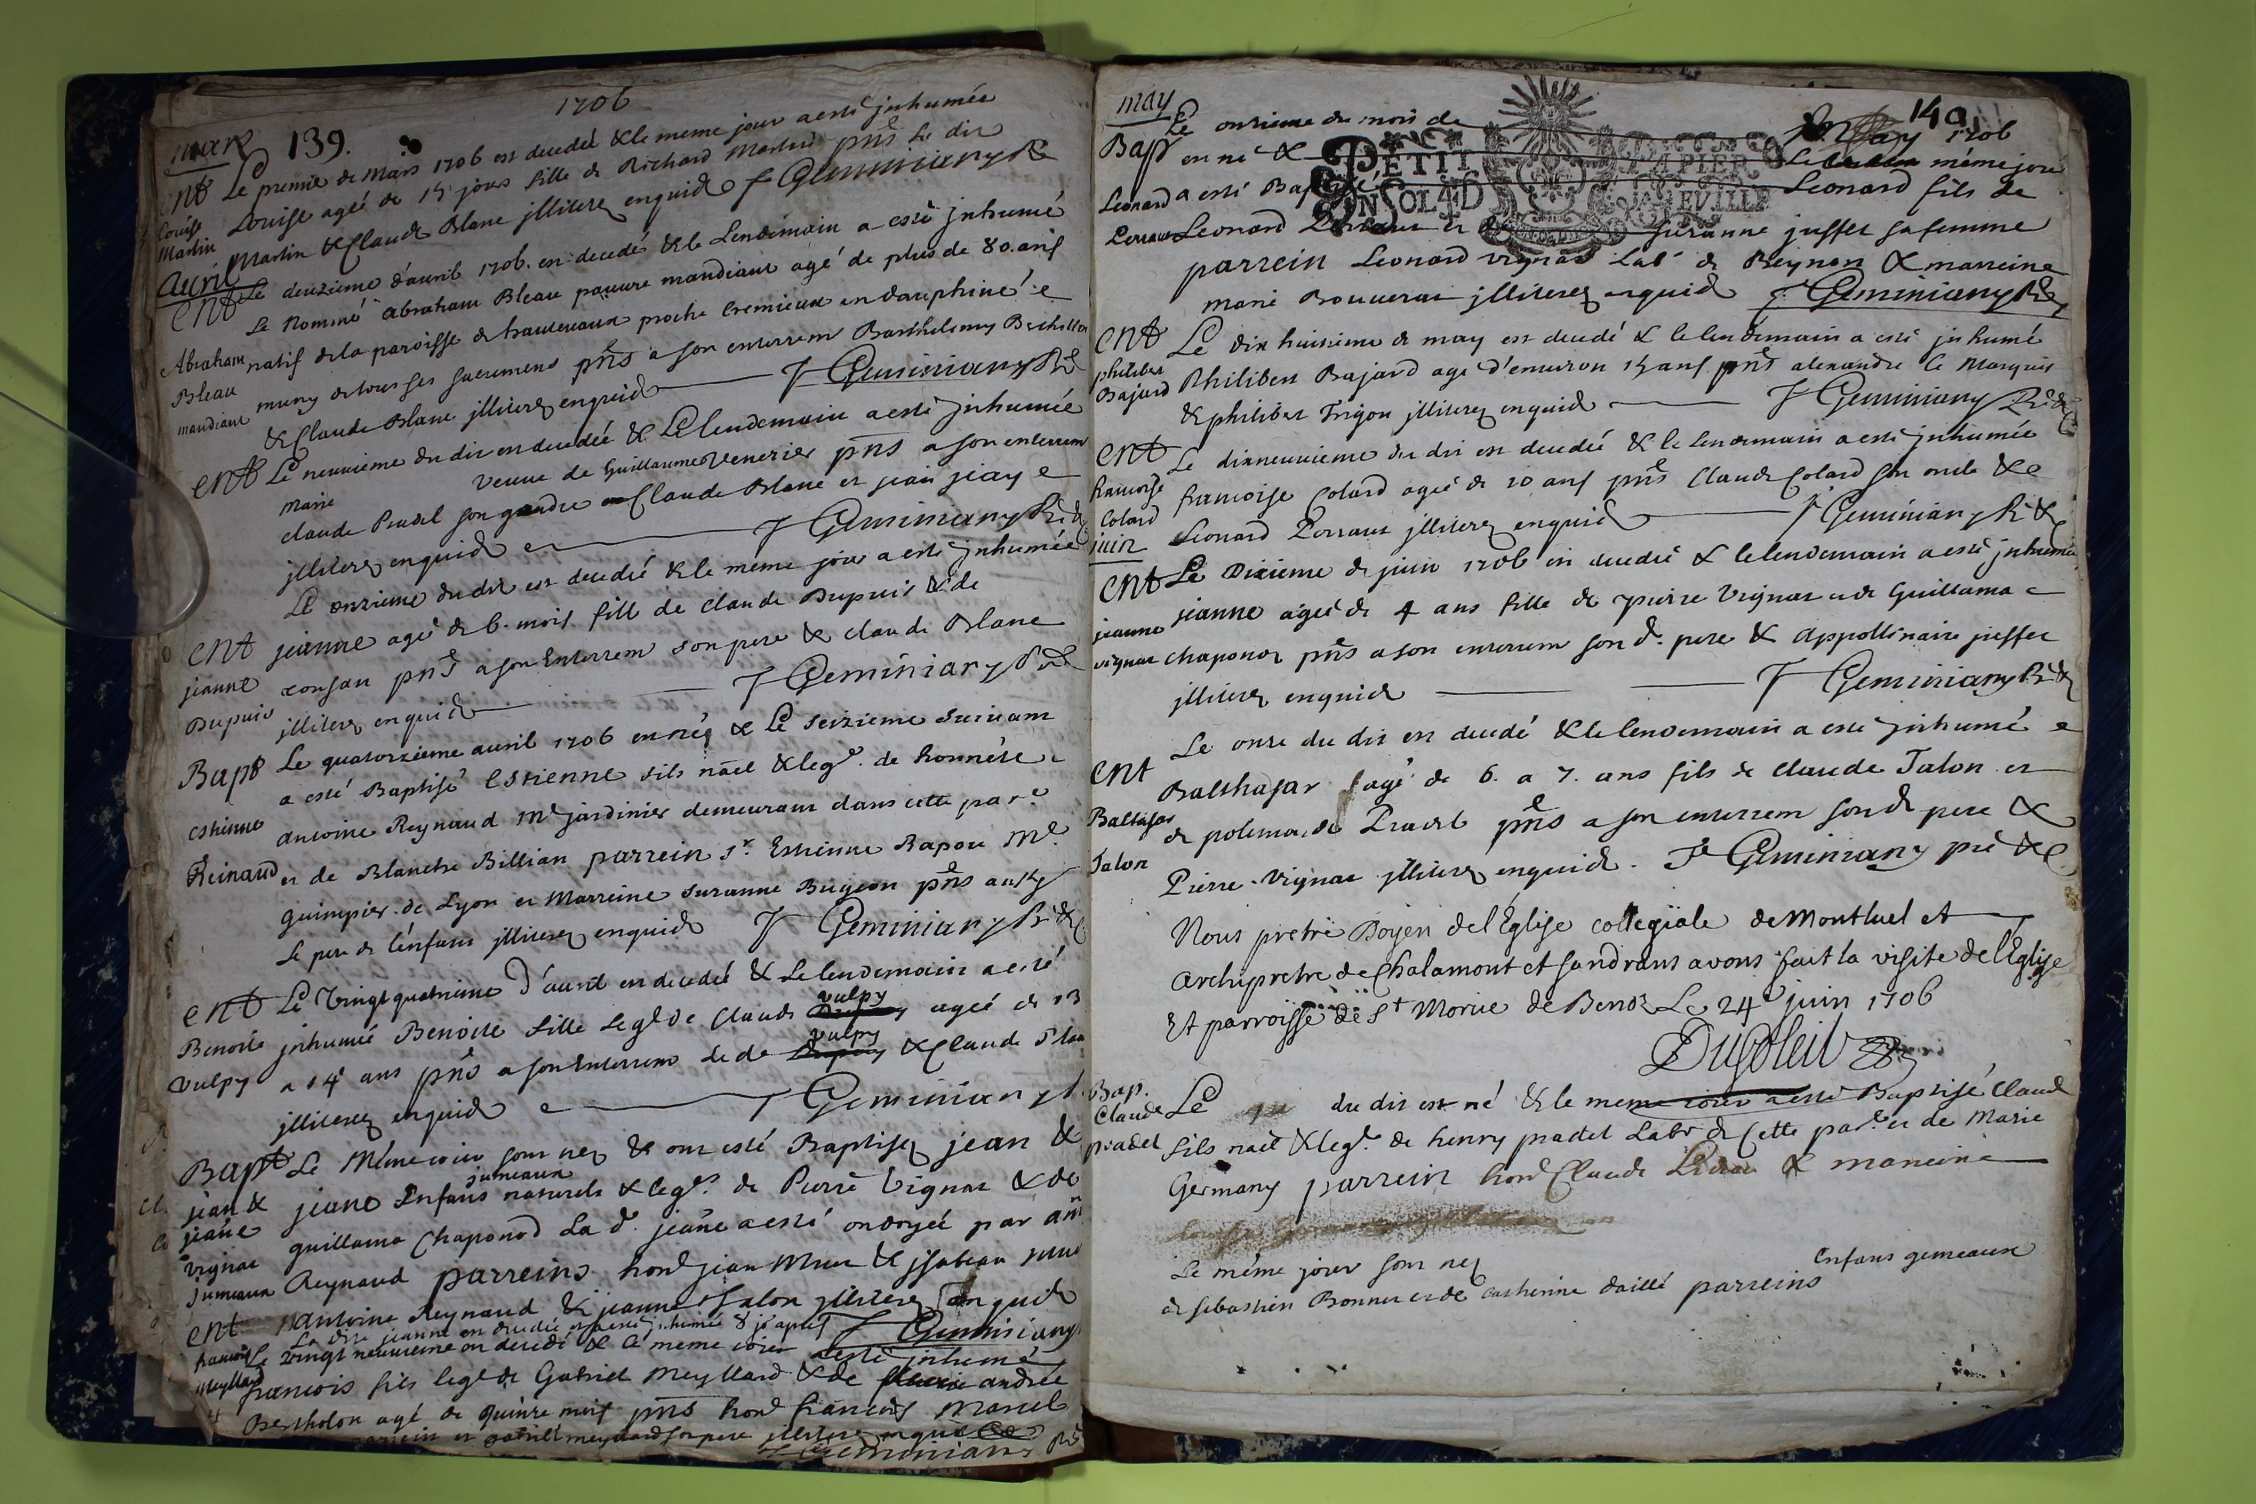 1706
mars 139.
ent Le premier de Mars 1706 est decedé & le meme jour a esté jnhumée
Louise Louise ageé de 15 jours fille de Richard Martin pnt Le dit
Martin Martin & Claude Blanc jlliterez enquis Geminiany
Avril
ent Le deuzieme d'auril 1706. est decedé & le Lendemain a esté jnhumé
Le Nommé abraham Bleau pauure mandiant agé de plus de 80. ans
Abraham natif de la paroisse de hauteuaux proche Cremieux en dauphiné e
Bleau muny de tous ses sacremens pnts a son enterrem Barthelemy
mandiant & Claude Blanc jlliterez enquis Geminiany
ent Le neuuieme du dit est decedée & Le lendemain a esté jnhumée
Marie veuue de Guillaume Venerier pnts a son enterrem
claude Pradel son gendre Claude Blanc et jean jeay e
jlliterez enquis Geminiany
Le onzieme du dit est decedé & le meme jour a esté jnhumée
ent jeanne ageé de 6. mois fille de claude Dupuis & de
jeanne pnts a son Enterrem son pere & claude Blanc
Dupuis jlliterez enquis Geminiany
Bapt Le quatorzieme auril 1706 est né & Le seizieme suiuant
a esté Baptisé Estienne fils nael & leg. de honnete
estienne antoine Reynaud Me jardinier demeurant dans cette par
Reinaud et de Blanche Billian parrein Sr. Estienne Rapou Me.
guimpier de Lyon et Marreine suzanne Bugeon pnts aussy
Le pere de l'enfant jlliterez enquis Geminiany
ent Le Vingt quatrieme d'auril est decedé & Le lendemain a esté
Benoite jnhumée Benoite fille leg de Claude vulpy ageé de 13
vulpy a 14 ans pnts a son Enterrem le dt vulpy & Claude Blan
jlliterez enquis Geminiany
Bapt Le Méme jour sont nez & ont esté Baptisez jean &
jean & jeane Enfans jumeaux naturels & leg. de Pierre Vignat & de
jeane guillama Chaponod La d. jeane a esté ondoyée par
vignat
jumeaux Reynaud parreins hon jean &
ent Antoine Reynaud & jeanne Talon jlliterez enquis
La dite jeanne est decedée et a esté jnhumée 8 jo apres Geminiany
francois Le vingt neuuieme est decedé & Le meme jour a esté jnhumé
Meyllard francois fils leg de Gabriel Meyllard & de andrée
Bertholon agé de quinze mois pnts hon francois Marcel
et gabriel meynard son pere jlliterez enquis
Geminiany
may 140
Le onzieme du mois de May 1706
PETIT PAPIER
Bapt est né & Le méme jour
Leonard a esté Baptisé Leonard fils de
Perraut Leonard Perraut et de suzanne juffet sa femme
parrein Leonard vignat Lab de Beynoz & marreine
marie jlliterez enquis Geminiany
ent Le dix huitieme de may est decedé & le lendemain a esté jnhumé
philibert Philibert Bajard agé d'enuiron 15 ans pnts alexandre Le Marquis
Bajard & philibert Frigon jlliterez enquis Geminiany
ent Le dixneuuieme du dit est decedé & le lendemain a esté jnhumée
francoise francoise Colard ageé de 20 ans pnts Claude Colard son oncle & e
Colard Leonard Perraut jlliterez enquis Geminiany
juin
ent Le Dixieme de juin 1706 est decedé & le lendemain a esté jnhumée
jeanne jeanne ageé de 4 ans fille de pierre Vignat et de Guillama
vignat chaponoz pnts a son enterrem son d. pere & Appollinaire juffet
jlliterez enquis Geminiany
Le onze du dit est decedé & le lendemain a esté jnhumé e
ent Balthasar agé de 6. a 7. ans fils de claude Talon et
Baltasar de Pradel pnts a son enterrem son d pere &
Talon Pierre Vignat jlliterez enquis. Geminiany
Nous pretre Doyen de l'Eglise collegiale de Montluel et
Archipretre de Chalamont et Sandrans avons fait la visite de l'Eglise
Et parroisse de St Morice de Benoz Le 24e juin 1706
Dusoleil
Bap. Le du dit est né & le meme jour a esté Baptisé Claude
Claude fils nael & leg. de henry pradel Labr de Cette par et de Marie
pradel Germany parrein hon Claude & marreine
Le méme jour sont nez enfans gemeaux
de sebastien Bonnet et de catherine daillé parreins